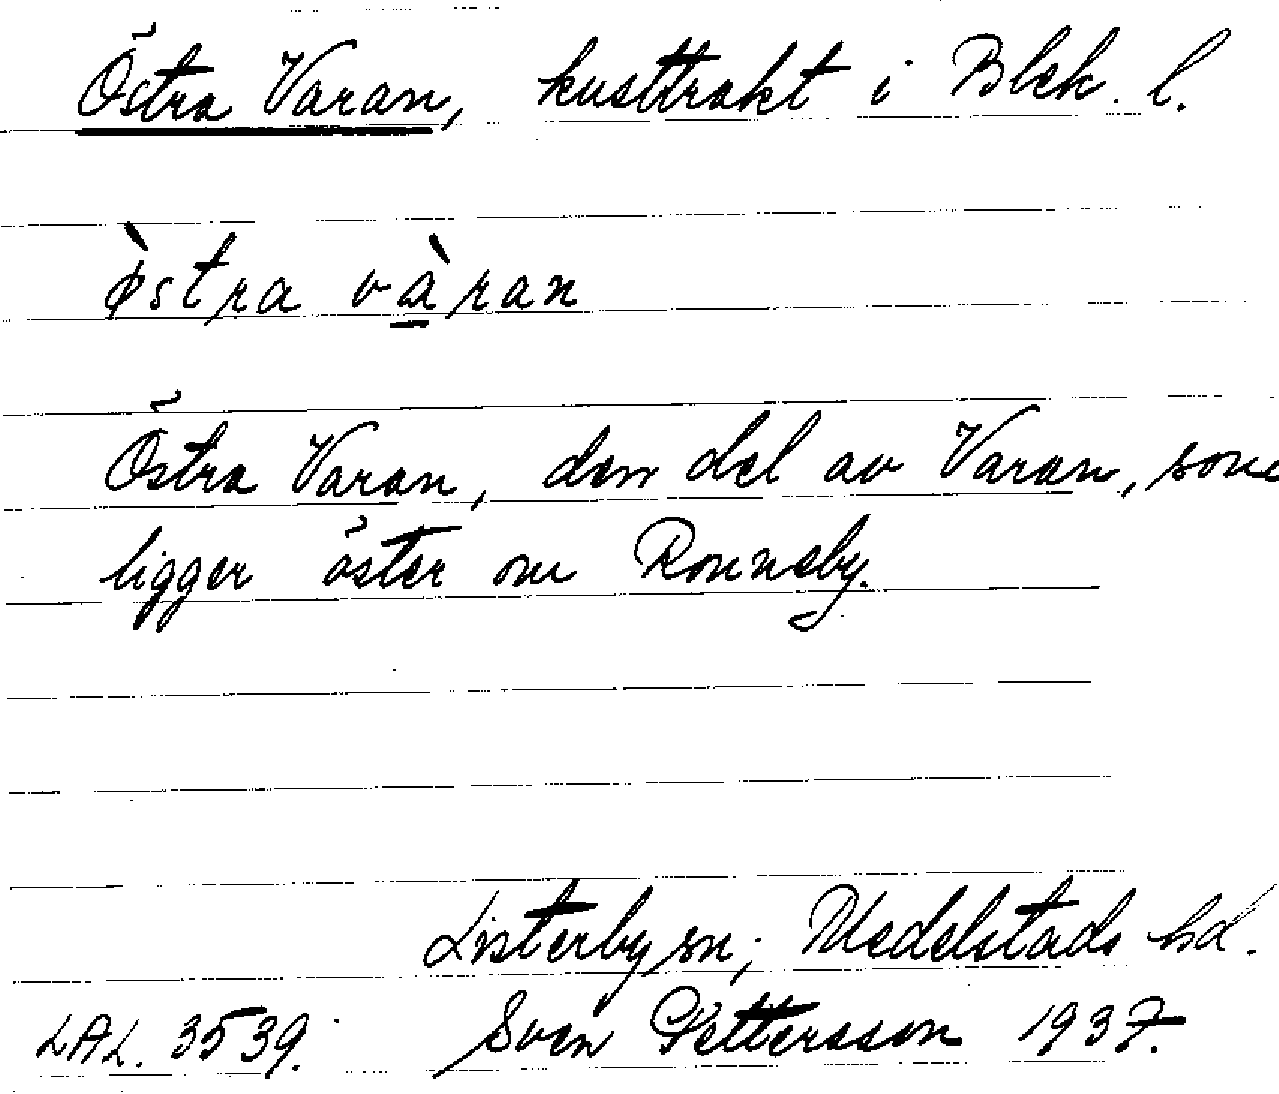 Östra Varan, kusttrakt i Blek. l.
ø̀stra và̱ran
Östra Varan, den del av Varan, som
ligger öster om Ronneby.
Listerby sn; Medelstads hd.
LAL. 3539. Sven Pettersson 1937.